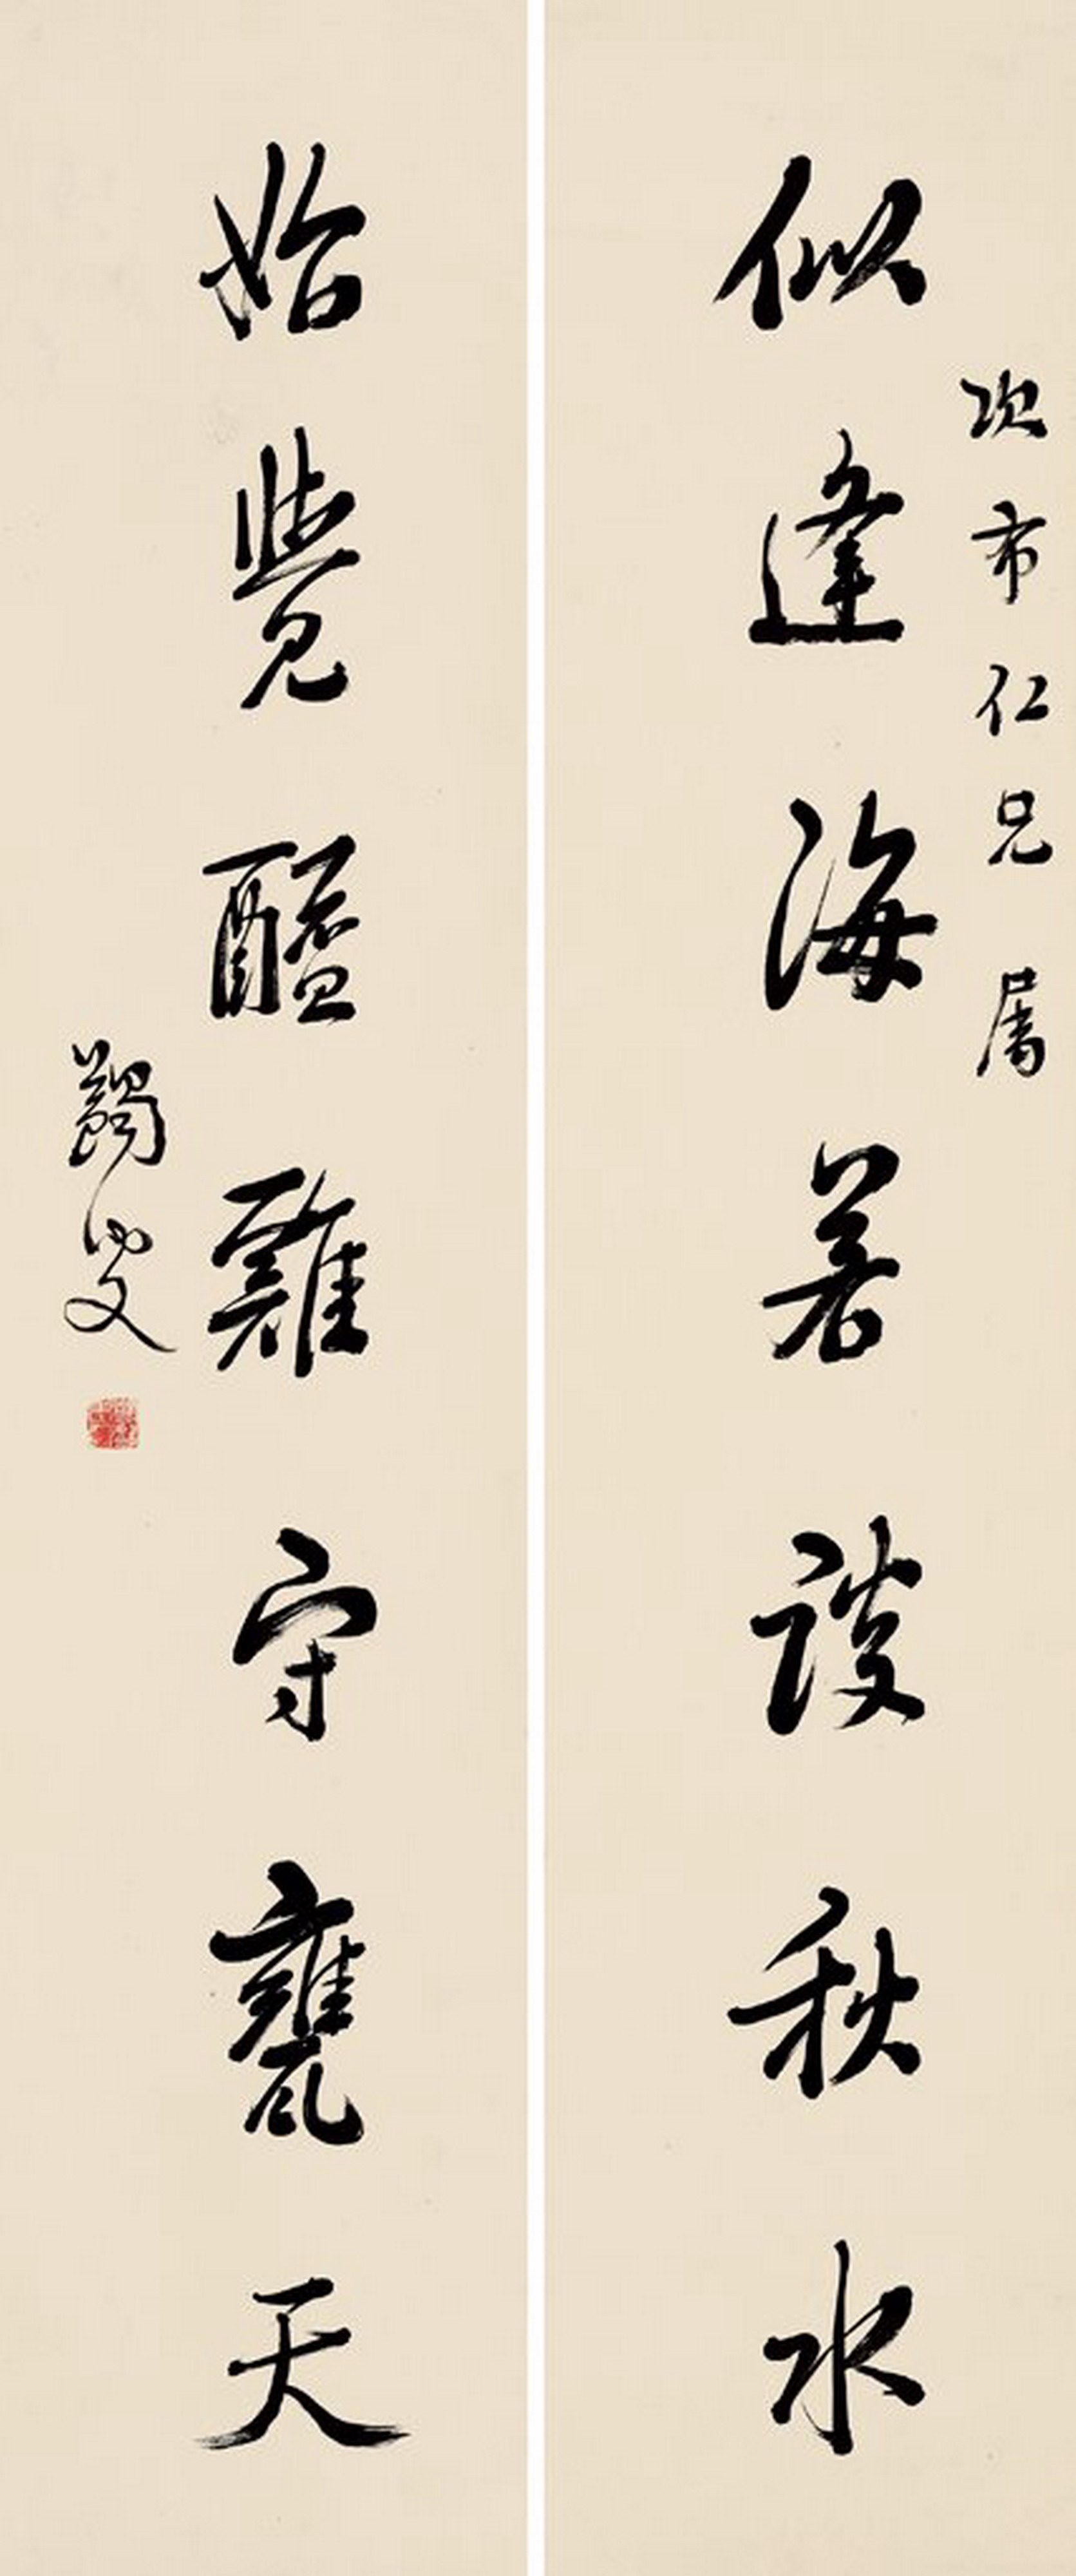 次市仁兄屬
似逢海若談秋水
始覺醯雞守甕天
蠲叟